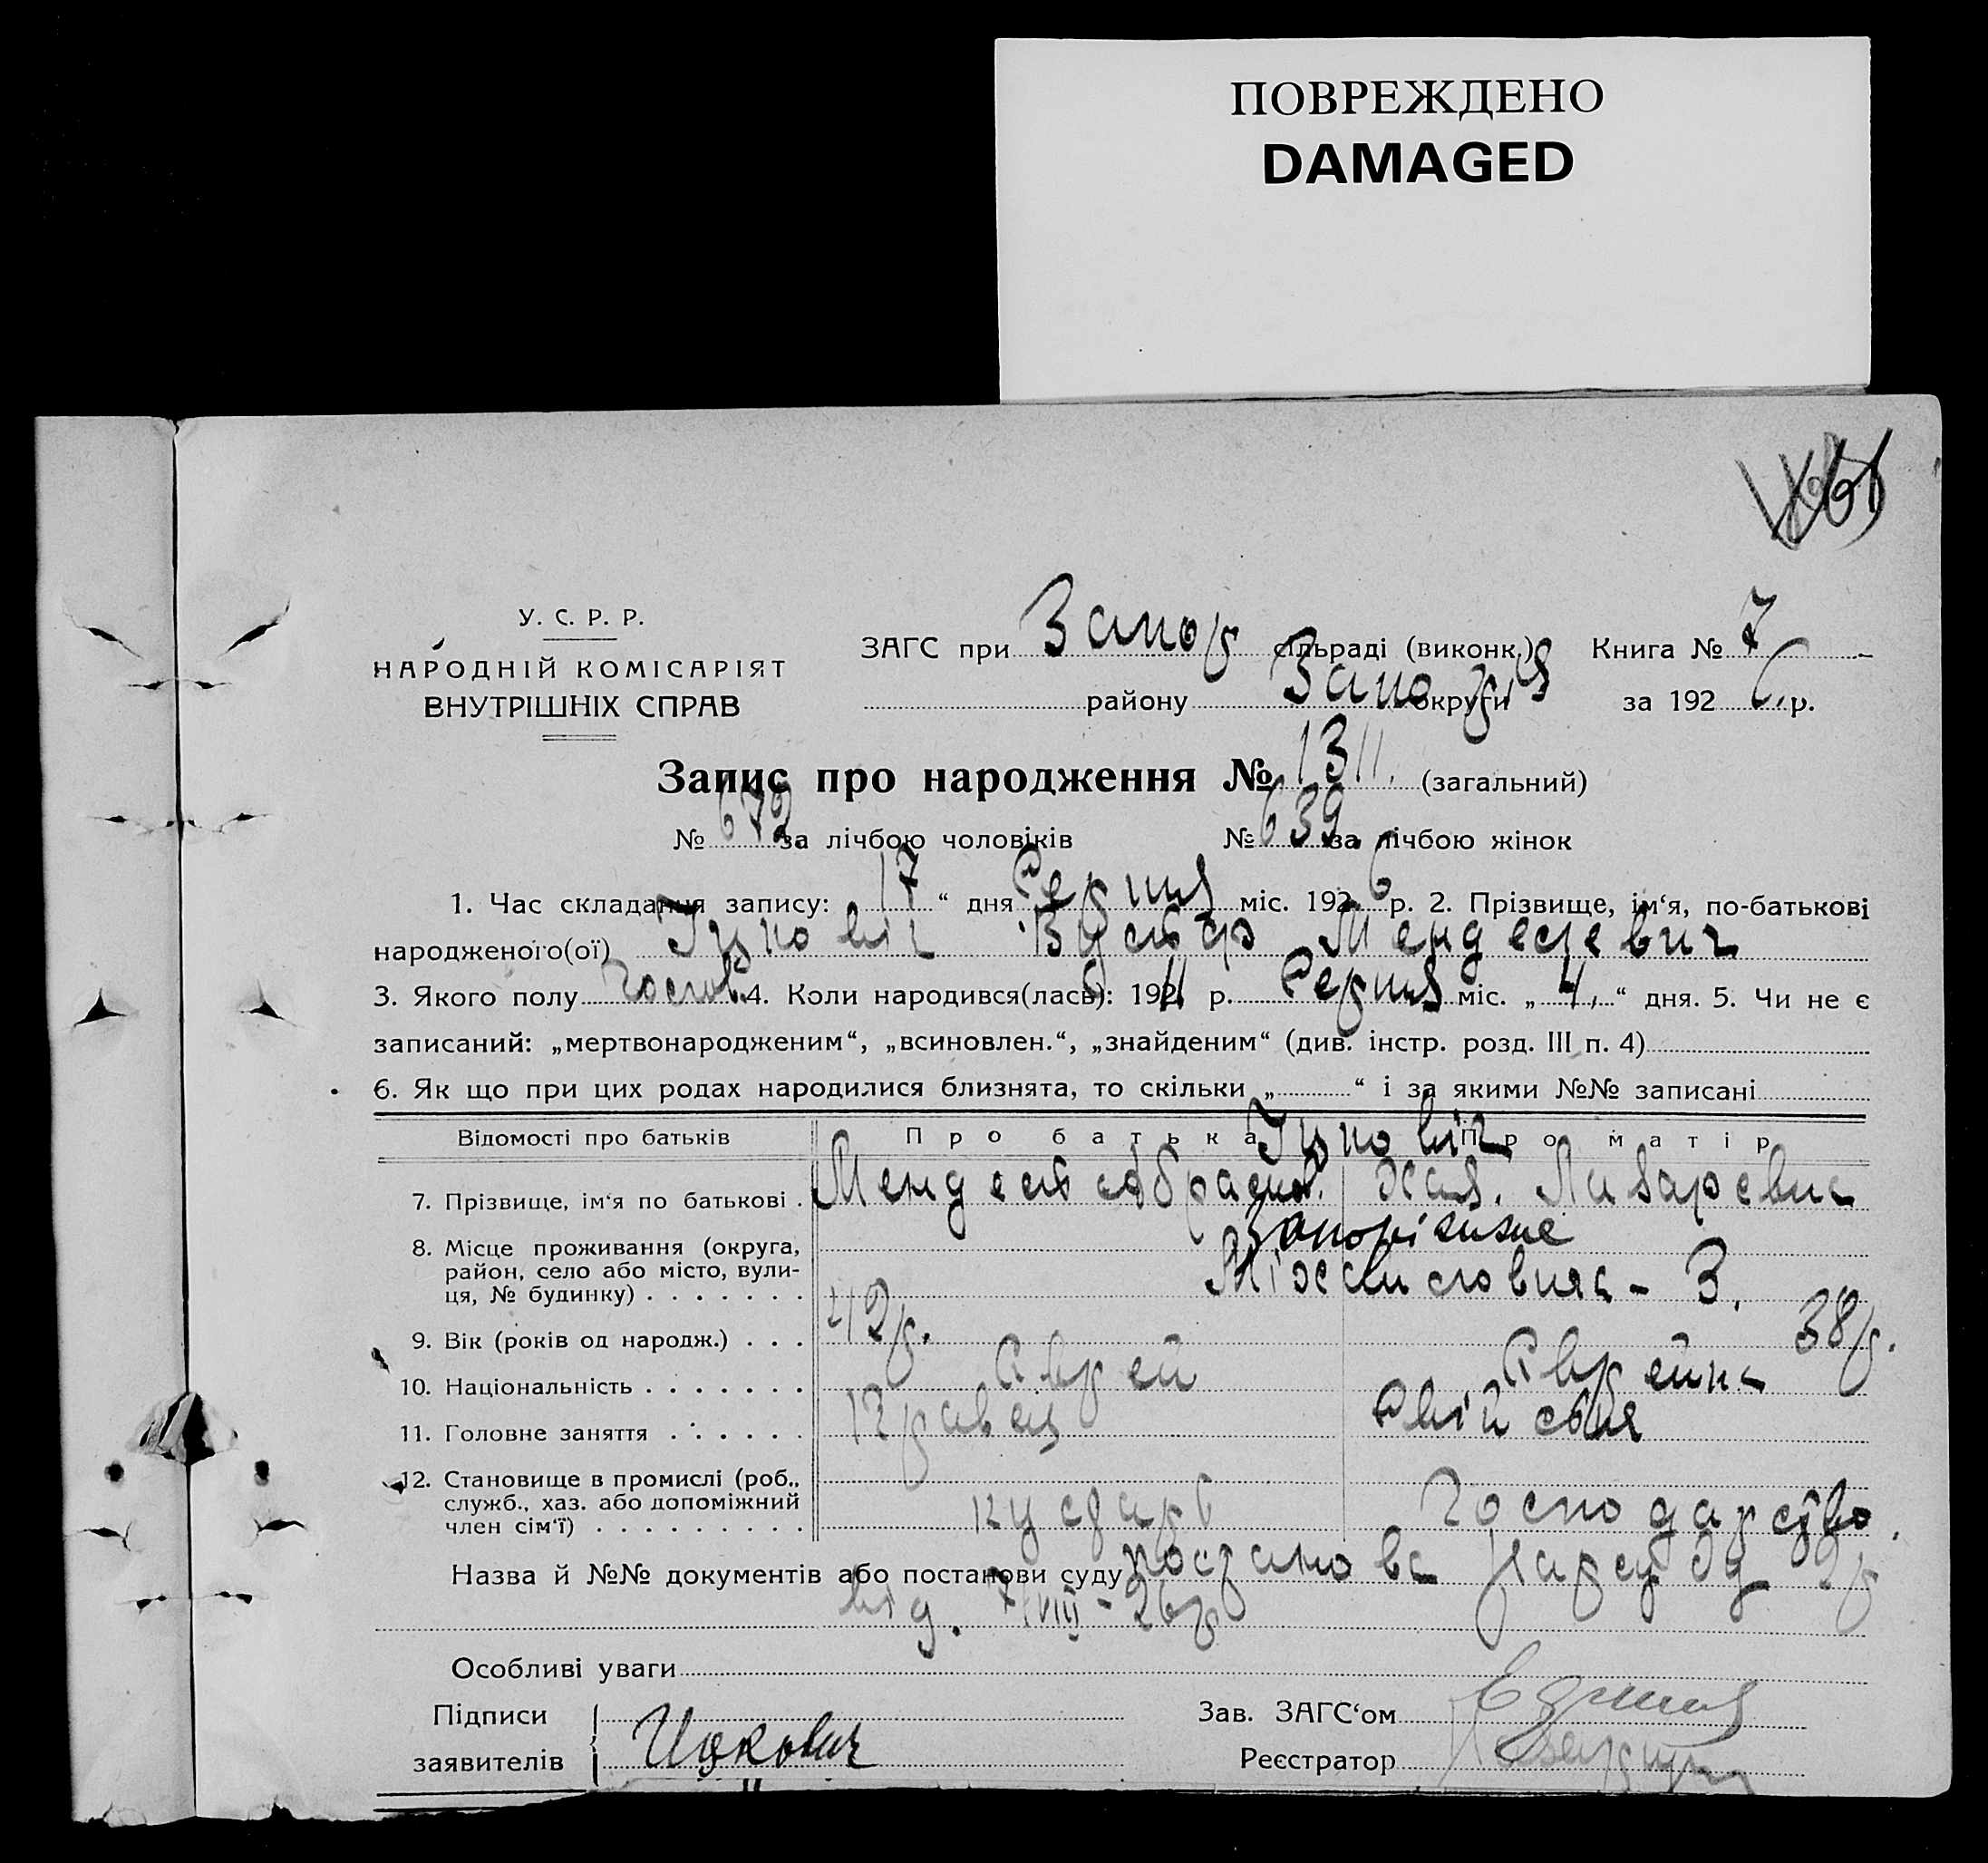 ПОВРЕЖДЕНО
DAMAGED
У. С. Р. Р.
НАРОДНІЙ КОМІСАРІЯТ
ВНУТРІШНІХ СПРАВ
ЗАГС при Запор сільраді (виконк.) Книга № 7
району Запоріз округи за 192 6 р.
Запис про народження № 1311. (загальний)
№ 672 за лічбою чоловіків № 639 за лічбою жінок
1. Час складання запису: 17 “ дня Серпня міс. 192 6 р. 2. Прізвище, ім‘я, по-батькові
народженого(ої) Іцковіч Менделевич
3. Якого полу чолов. 4. Коли народився(лась): 192 р. Серпня міс. „ 4, “ дня. 5. Чи не є
записаний: „мертвонародженим“, „всиновлен.“, „знайденим“ (див. інстр. розд. III п. 4)
6. Як що при цих родах народилися близнята, то скільки „ “ і за якими №№ записані
Відомості про батьків Про батька Іцковіч Про матір
7. Прізвище, ім‘я по батькові . Мендель Абрамов. Хая. Лазаревна
8. Місце проживання (округа, район, село або місто, вулиця, № будинку) . . . . . . . Запоріжжє
- 3.
9. Вік (років од народж.) . . . 42р. 38р.
10. Національність . . . . . . . Єврей Єврейка
11. Головне заняття . . . . . . Кравец
12. Становище в промислі (роб., служб., хаз. або допоміжний член сім‘ї) . . . . . . . . . кустарь Господарство.
Назва й №№ документів або постанови суду постанова Нарсуду 2р
від. 7/VIII - 26р
Особливі уваги
Підписи
заявителів Ицкович
Зав. ЗАГС‘ом
Реєстратор